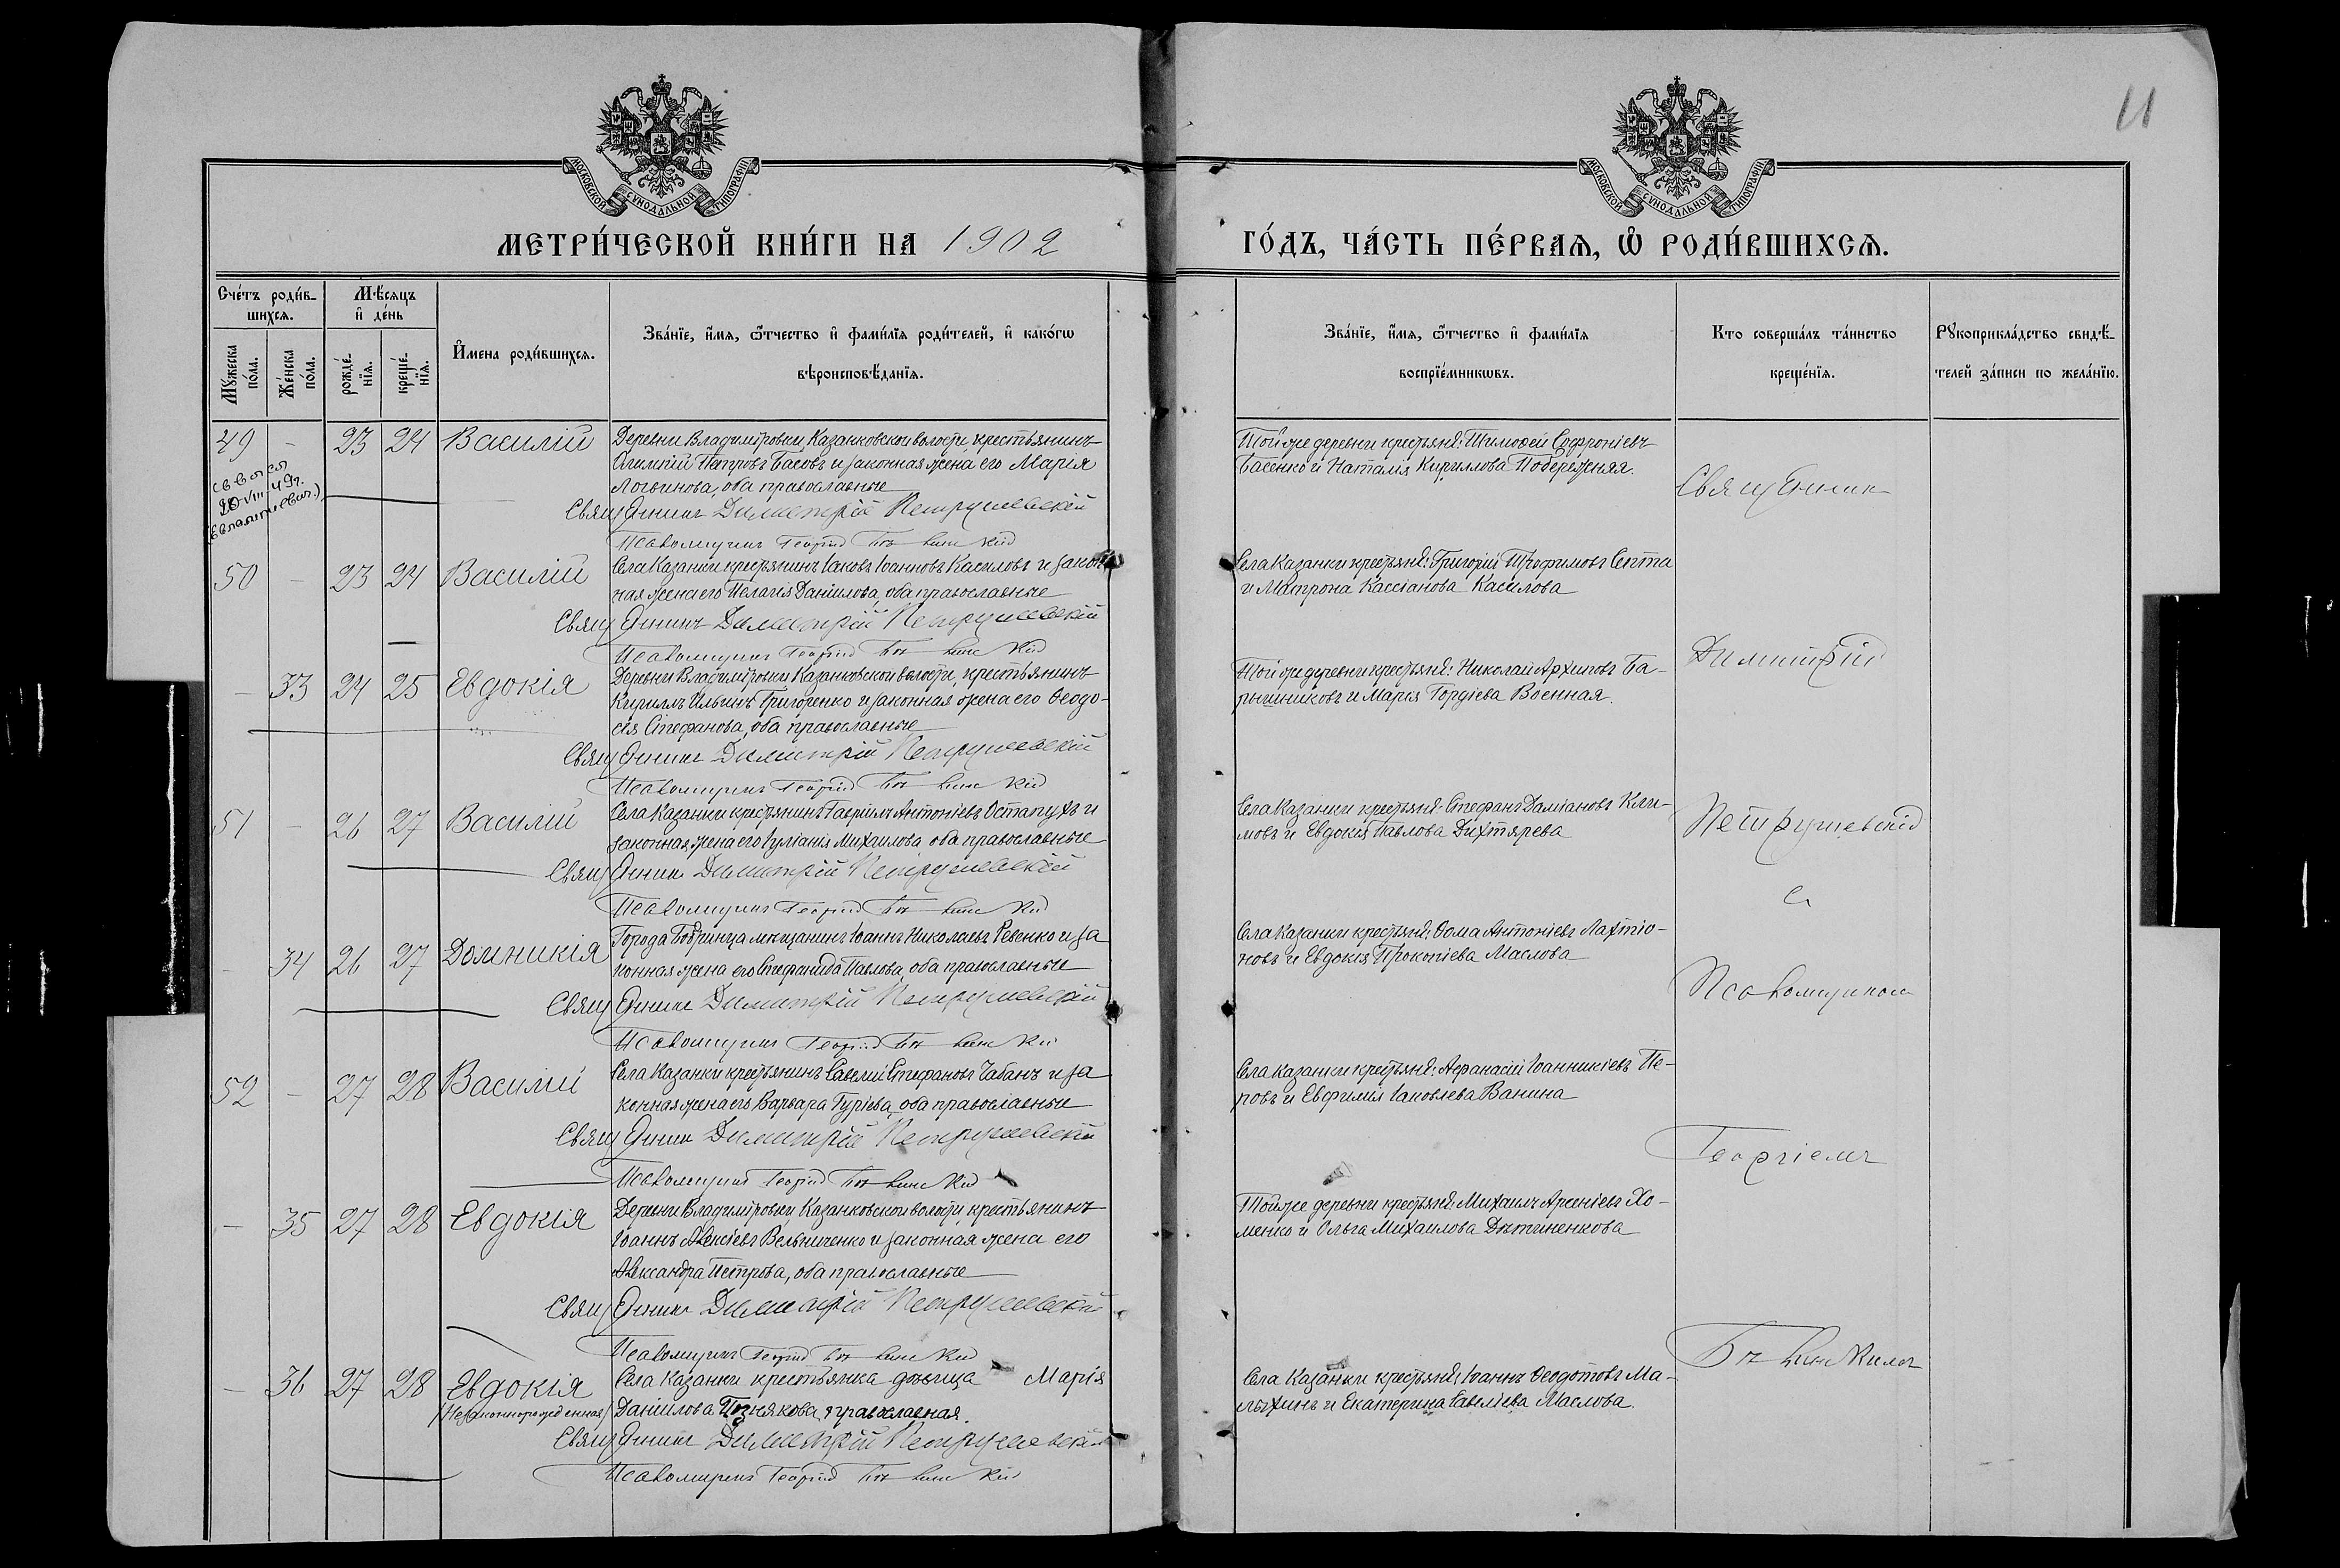 11
МОСКОВСКОЙ СѴНОДАЛЬНОЙ ТИПОГРАФІИ
МОСКОВСКОЙ СѴНОДАЛЬНОЙ ТИПОГРАФІИ
МЕТРИ́ЧЕСКОЙ КНИ́ГИ НА 1902
ГО́ДЪ, ЧА́СТЬ ПЕ́РВАѦ, Ѽ РОДИ́ВШИХСѦ.
Сче́тъ роди́в-
шихсѧ.
Мѣ́сѧцъ
и҆ де́нь
Мꙋ́жеска
по́ла.
Же́нска
по́ла.
рожде́-
нїѧ.
креще́-
нїѧ.
И҆мена роди́вшихсѧ.
Зва́нїе, и҆́мѧ, ѻ҆́тчество и҆ фами́лїѧ роди́телей, и҆ како́гѡ
вѣроисповѣ́данїѧ.
Зва́нїе, и҆́мѧ, ѻ҆́тчество и҆ фами́лїѧ
воспрїе́мникѡвъ.
Кто соверша́лъ та́инство
креще́нїѧ.
Рꙋкоприкла́дство свидѣ́-
телей за́писи по жела́нїю.
49 - 23 24 Василій
Деревни Владиміровки, Казанковской волости, крестьянинъ
Петровъ Басовъ и законная жена его Марія
Логвинова, оба православные
Священникъ Димитрій Петрушевскій
Псаломщикъ Георгій
Той же деревни крестьяне: Тимоѳей Софроніевъ
Басенко и Наталія Кириллова Побережняя.
Священник
50 - 23 24 Василій
Села Казанки крестьянинъ Іаковъ Іоанновъ Касиловъ и закон
ная жена его Пелагія Даніилова, оба православные
Священникъ Димитрій Петрушевскій
Псаломщикъ Георгій
Села Казанки крестьяне: Григорій Трофимовъ Септа
и Матрона Кассіанова Касилова
Димитрій
- 33 24 25 Евдокія
Деревни Владиміровки Казанковской волости, крестьянинъ
Кириллъ Ильинъ Григоренко и законная жена его Ѳеодо-
сія Стефанова, оба православные
Священникъ Димитрій Петрушевскій
Псаломщикъ Георгій
Той же деревни крестьяне: Николай Архиповъ Ба-
рышниковъ и Марія Гордіева Военная.
51 - 26 27 Василій
Села Казанки крестьянинъ Гавріилъ Антоніевъ Остапухъ и
законная жена его Іуліанія Михаилова оба православные
Священникъ Димитрій Петрушевскій
Псаломщикъ Георгій
Села Казанки крестьяне: Стефанъ Даміановъ Кли-
мовъ и Евдокія Павлова Дихтярева
Петрушевскій
с
- 34 26 27 Домникія
Города Бобринца мѣщанинъ Іоаннъ Николаевъ Ревенко и за
конная жена его Стефанида Павлова, оба православные
Священникъ Димитрій Петрушевскій
Псаломщикъ Георгій
Села Казанки крестьяне: Ѳома Антоніевъ Лахтіо-
новъ и Евдокія Прокопіева Маслова
Псаломщиком
52 - 27 28 Василій
Села Казанки крестьянинъ Савелій Стефановъ Чабанъ и за
конная жена его Варвара Гуріева, оба православные
Священникъ Димитрій Петрушевскій
Псаломщикъ Георгій
Села Казанки крестьяне: Аѳанасій Іоанникіевъ Пе-
ровъ и Евфимія Іаковлева Ванина
Георгіемъ
- 35 27 28 Евдокія
Деревни Владиміровки, Казанковской волости, крестьянинъ
Іоаннъ Алексіевъ Вельниченко и законная жена его
Александра Петрова, оба православные
Священникъ Димитрій Петрушевскій
Псаломщикъ Георгій
Той же деревни крестьяне: Михаилъ Арсеніевъ Хо-
менко и Ольга Михаилова Дѣтиненкова
- 36 27 28 Евдокія
(Незаконнорожденная)
Села Казанки крестьянка дѣвица Марія
Даніилова Познякова, православная.
Священникъ Димитрій Петрушевскій
Псаломщикъ Георгій
Села Казанки крестьяне: Іоаннъ Ѳеодотовъ Ма-
лыхинъ и Екатерина Савеліева Маслова.